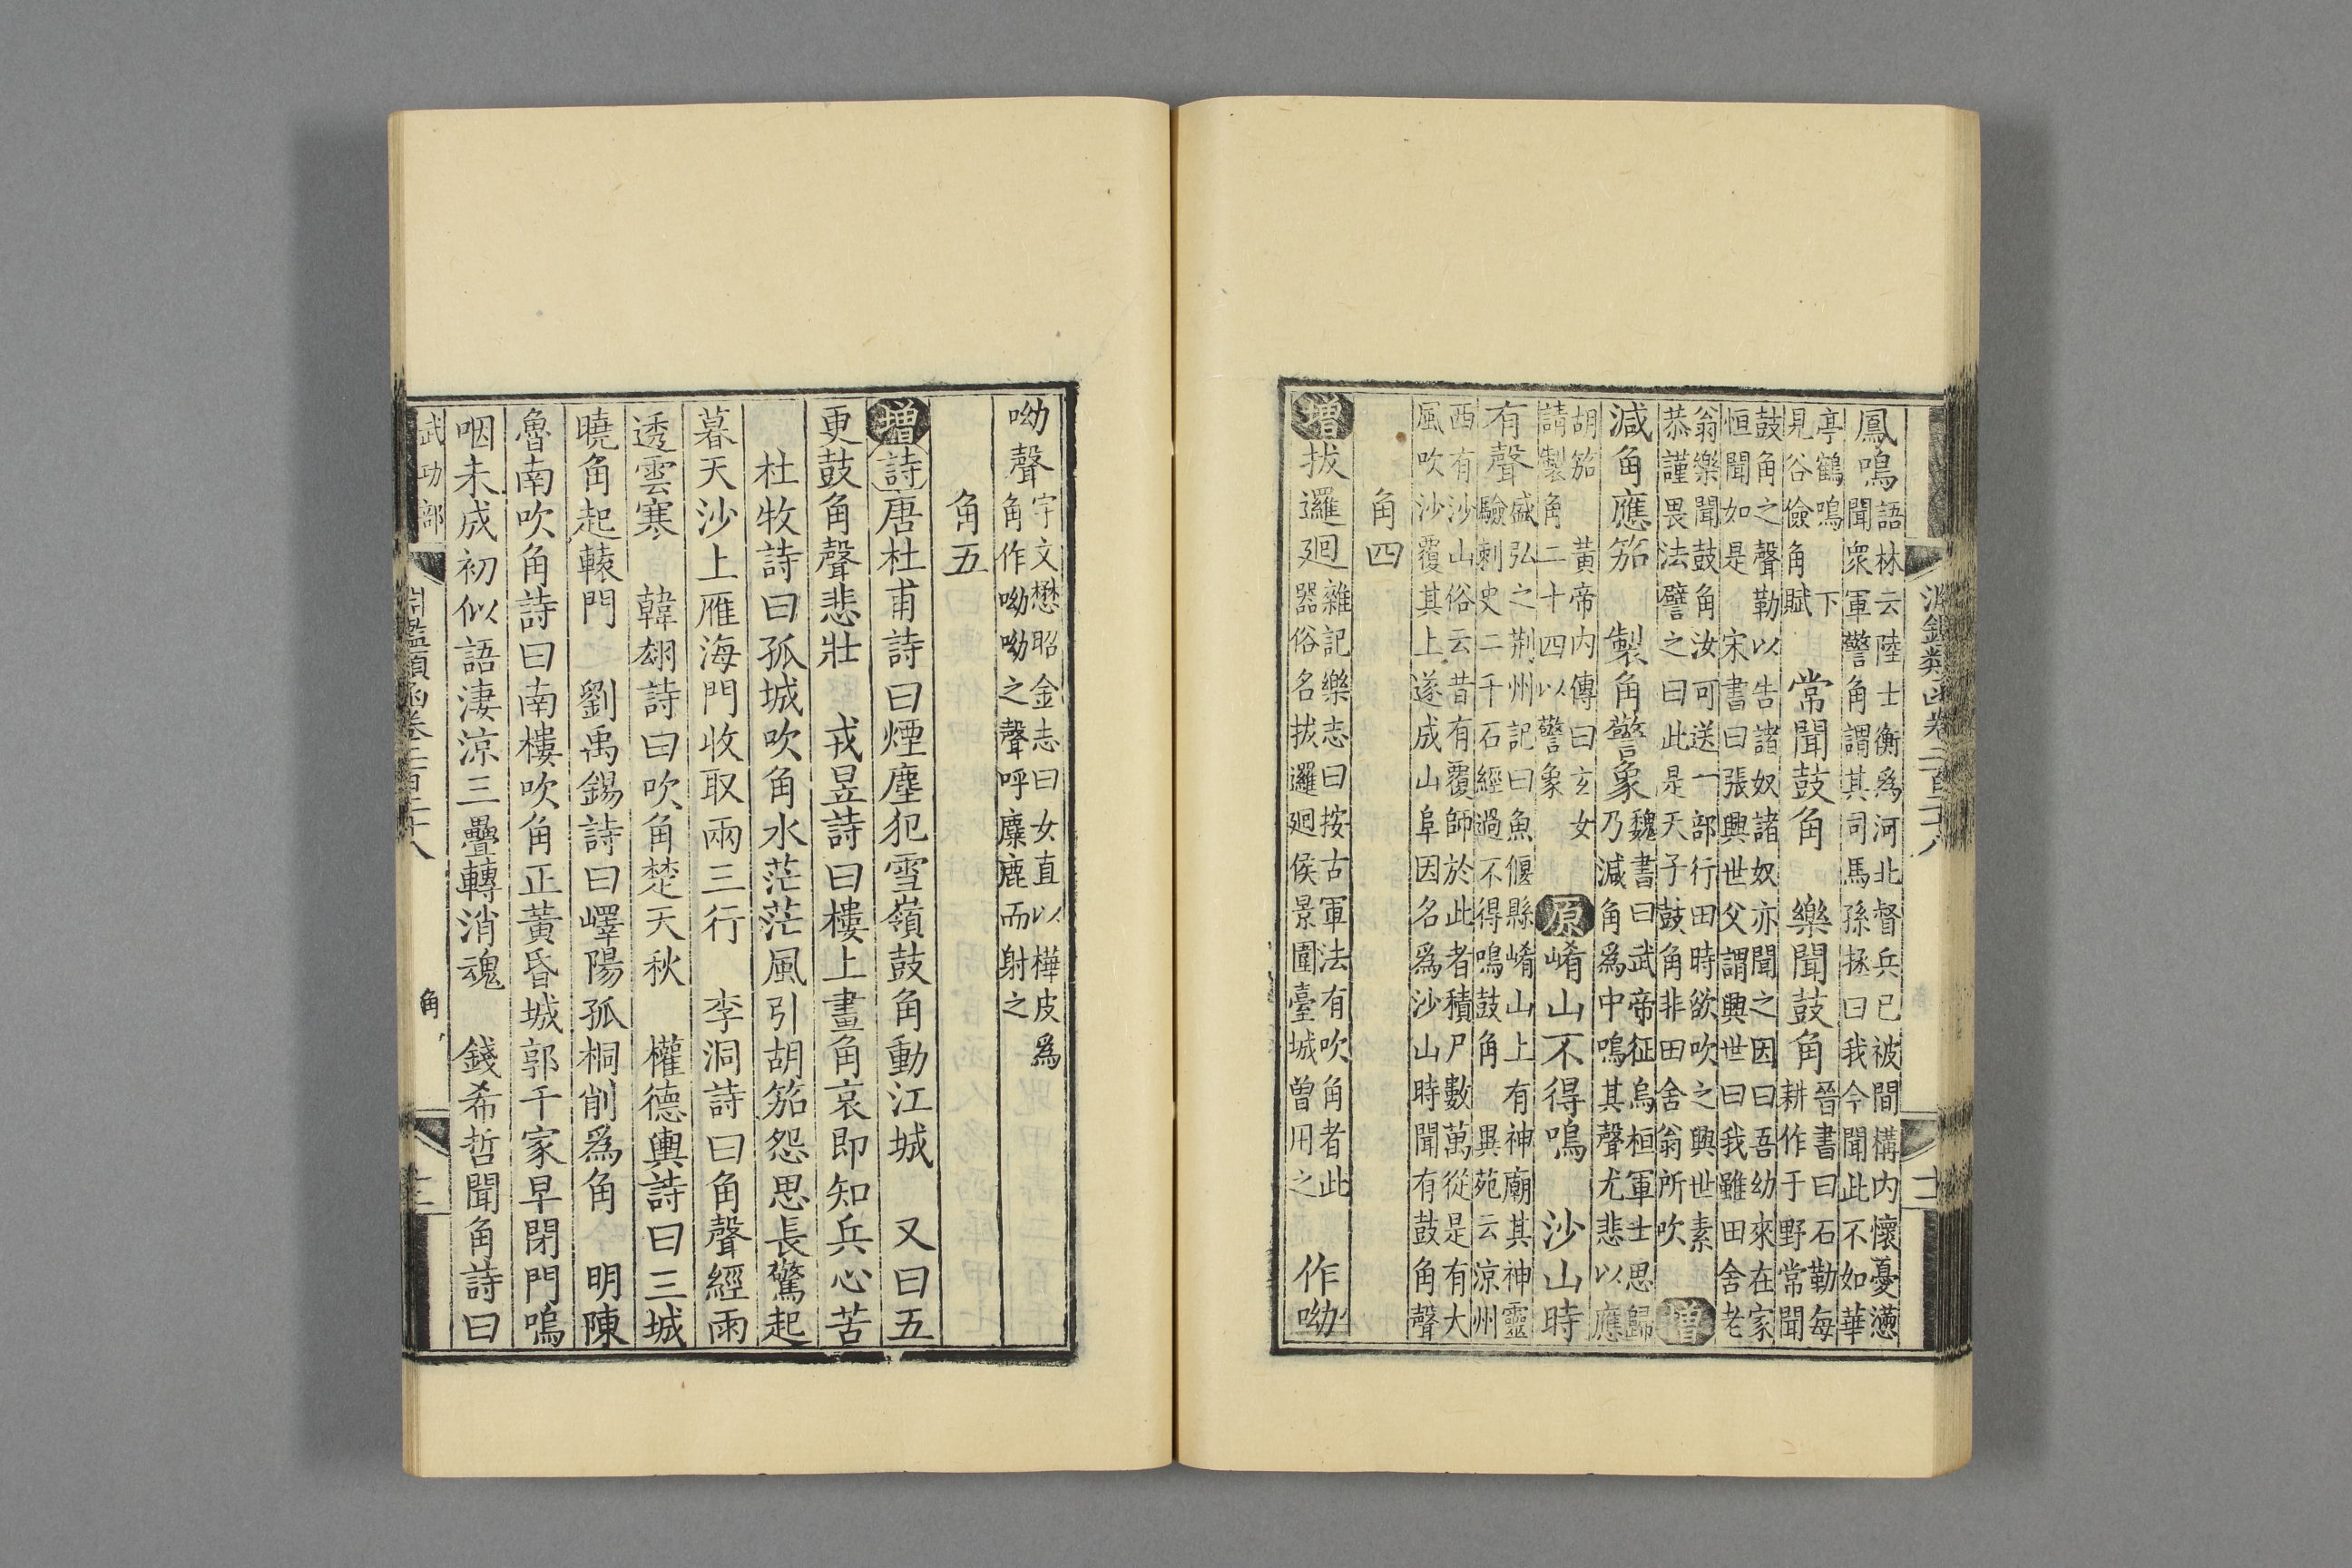 淵鑑類函卷二百二十八
鳳鳴語林云陸士衡爲河北督兵已被間構内懷憂懣
聞衆軍警角謂其司馬孫拯曰我今聞此不如華
亭鶴鳴下
見谷儉角賦　常聞鼓角　樂聞鼓角晉書曰石勒每
耕作于野常聞
鼓角之聲勒以告諸奴諸奴亦聞之因曰吾幼來在家
恒聞如是　宋書曰張興世父謂興世曰我雖田舍老
翁樂聞鼓角汝可送一部行田時欲吹之興世素
恭謹畏法譬之曰此是天子鼓角非田舍翁所吹　增
減角應笳　製角警象魏書曰武帝征烏桓軍士思歸
乃減角爲中鳴其聲尤悲以應
胡笳　黃帝内傳曰玄女
請製角二十四以警象　原崤山不得鳴　沙山時
有聲盛弘之荆州記曰魚偃縣崤山上有神廟其神靈
驗刺史二千石經過不得鳴鼓角　異苑云涼州
西有沙山俗云昔有覆師於此者積尸數萬從是有大
風吹沙覆其上遂成山阜因名爲沙山時聞有鼓角聲
角四
增拔邏廻雜記樂志曰按古軍法有吹角者此
器俗名拔邏廻侯景圍臺城曾用之　作呦
呦聲宇文懋昭金志曰女直以樺皮爲
角作呦呦之聲呼麋鹿而射之
角五
增詩唐杜甫詩曰煙塵犯雪嶺鼓角動江城　又曰五
更鼓角聲悲壯　戎昱詩曰樓上畫角哀即知兵心苦
杜牧詩曰孤城吹角水茫茫風引胡笳怨思長驚起
暮天沙上雁海門收取兩三行　李洞詩曰角聲經雨
透雲寒　韓翃詩曰吹角楚天秋　權德輿詩曰三城
曉角起轅門　劉禹錫詩曰嶧陽孤桐削爲角　明陳
魯南吹角詩曰南樓吹角正黃昏城郭千家早閉門嗚
咽未成初似語淒涼三疊轉消魂　錢希哲聞角詩曰
武功部　淵鑑類函卷二百二十八　角